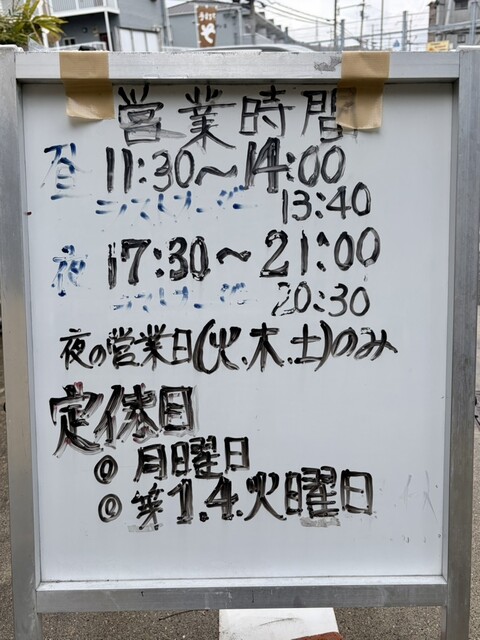 営業時間
昼 11:30～14:00
ラストオーダー 13:40
夜 17:30～21:00
ラストオーダー 20:30
夜の営業日(火.木.土)のみ
定休日
@ 月曜日
@ 第1.4.火曜日